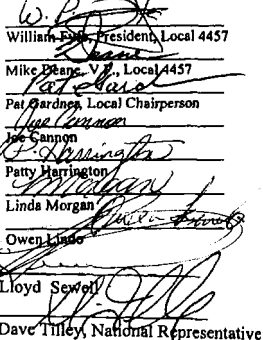 William Fyfe, President, Local 4457
Mike Deane, V.P., Local 4457
Pat Gard
Pat Gardner, Local Chairperson
Joe Cannon
Joe Cannon
P. Harrington
Patty Harrington
L Morgan
Linda Morgan
Owen Lindo
Lloyd Sewell
Dave Tilley, National Representative